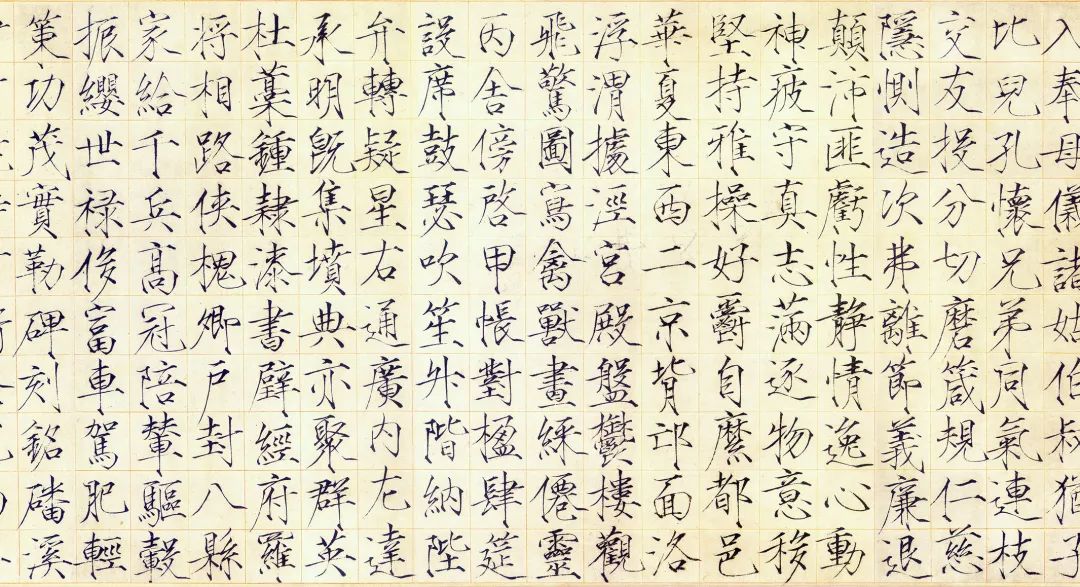 入奉母儀諸姑伯叔猶子
比兒孔懷兄弟同氣連枝
交友投分切磨箴規仁慈
隱惻造次弗離節義廉退
顛沛匪虧性靜情逸心動
神疲守真志滿逐物意移
堅持雅操好爵自縻都邑
華夏東西二京背邙面洛
浮渭據涇宮殿盤鬱樓觀
飛驚圖寫禽獸畫綵僊靈
丙舍傍啓甲帳對楹肆筵
設席鼓瑟吹笙升階納陛
弁轉疑星右通廣內左達
承明既集墳典亦聚群英
杜藁鍾隸漆書壁經府羅
將相路俠槐卿戶封八縣
家給千兵高冠陪輦驅轂
振纓世祿侈富車駕肥輕
策功茂實勒碑刻銘磻溪